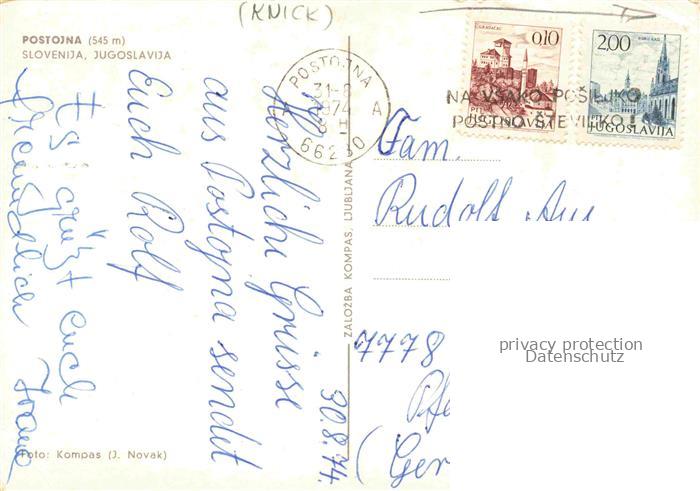 (KNICK)
POSTOJNA (545 m)
SLOVENIJA, JUGOSLAVIJA
POSTOJNA
31-8
1974
A
66230
GRADAČAC
0,10
2,00
JUGOSLAVIJA
NA VSAKO POŠILJKO
POSTNO ŠTEVILKO!
30.8.74.
Herzlichi Grüsse
aus Postojna sendet
Euch Rolf
Es grüßt euch
Fam.
Rudolf
7778
(Ger
ZALOŽBA KOMPAS, LJUBLJANA
Foto: Kompas (J. Novak)
privacy protection
Datenschutz